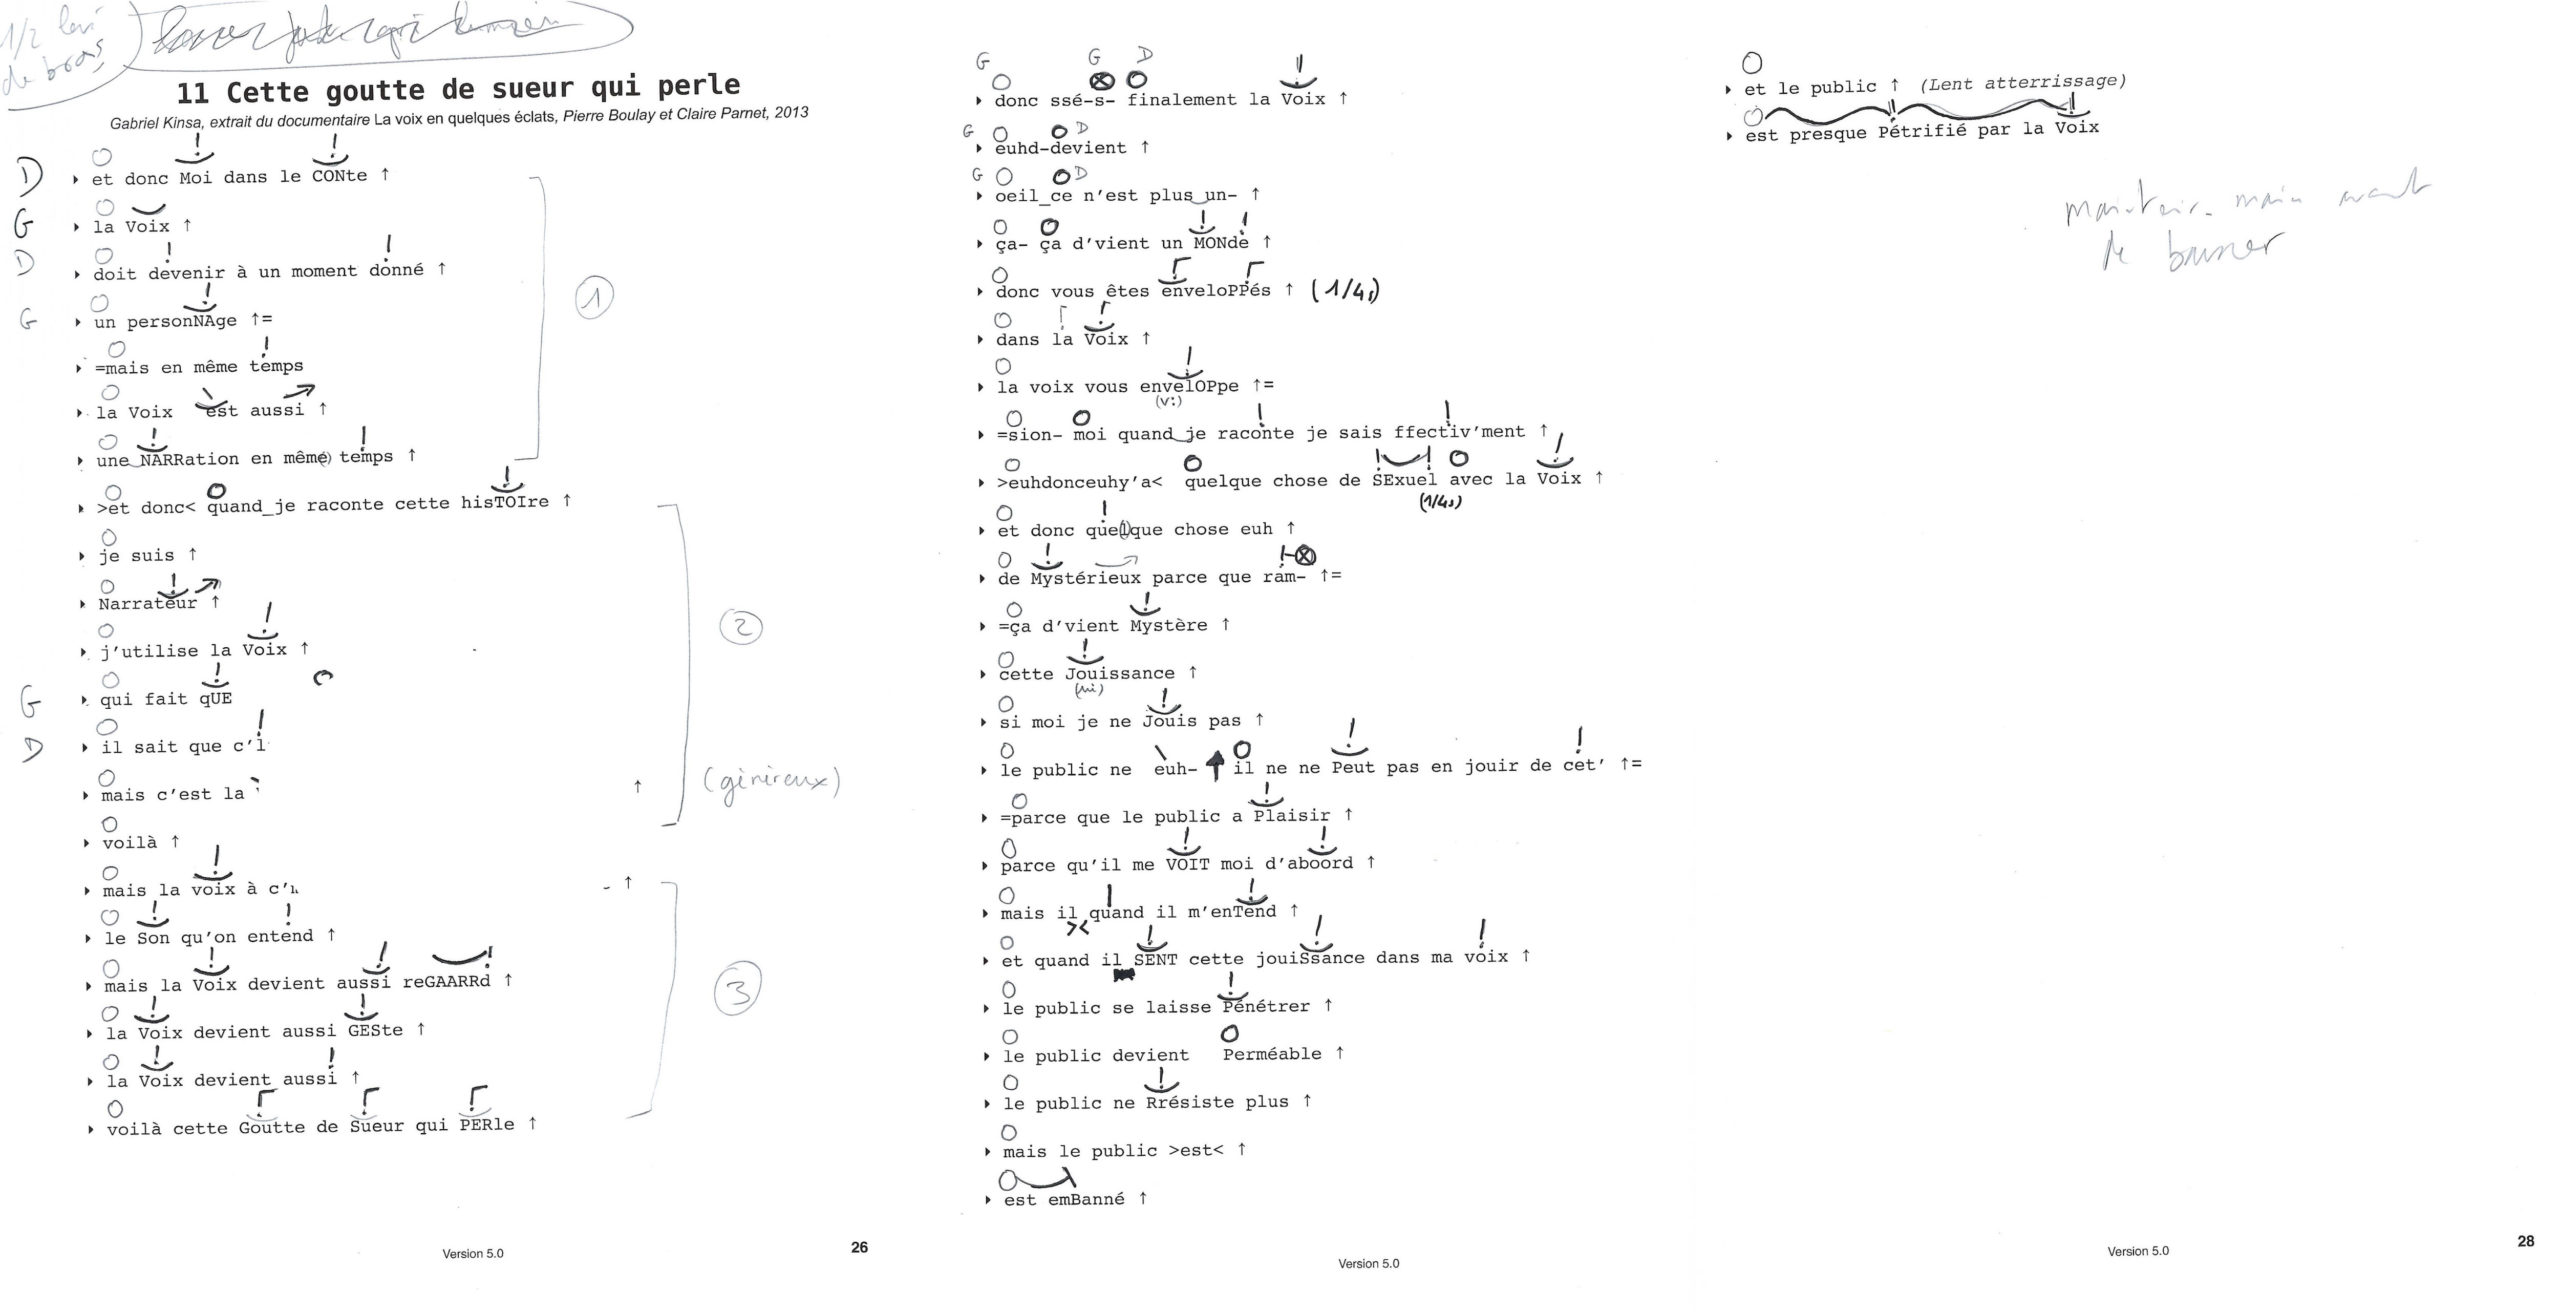 1/2
de bras
11 Cette goutte de sueur qui perle
Gabriel Kinsa, extrait du documentaire La voix en quelques éclats, Pierre Boulay et Claire Parnet, 2013
D ‣ et donc Moi dans le CONte ↑
G ‣ la Voix ↑
D ‣ doit devenir à un moment donné ↑
G ‣ un personNAge ↑=
‣ =mais en même temps
‣ la Voix est aussi ↑
‣ une_NARRation en même) temps ↑
①
‣ >et donc< quand_je raconte cette hisTOIre ↑
‣ je suis ↑
‣ Narrateur ↑
‣ j'utilise la Voix ↑
G ‣ qui fait qUE
D ‣ il sait que c'
‣ mais c'est la ↑
‣ voilà ↑
②
(généreux)
‣ mais la voix à c' - ↑
‣ le Son qu'on entend ↑
‣ mais la Voix devient aussi reGAARRd ↑
‣ la Voix devient aussi GESte ↑
‣ la Voix devient aussi ↑
‣ voilà cette Goutte de Sueur qui PERle ↑
③
Version 5.0
26
G G D
‣ donc ssé-s- finalement la Voix ↑
G D
‣ euhd-devient ↑
G D
‣ oeil_ce n'est plus_un- ↑
‣ ça- ça d'vient un MONde ↑
‣ donc vous êtes enveloPPés ↑ (1/4s)
‣ dans la Voix ↑
‣ la voix vous envelOPpe ↑=
(v:)
‣ =sion- moi quand_je raconte je sais ffectiv'ment ↑
‣ >euhdonceuhy'a< quelque chose de SExuel avec la Voix ↑
(1/4s)
‣ et donc que(l)que chose euh ↑
‣ de Mystérieux parce que ram- ↑=
‣ =ça d'vient Mystère ↑
‣ cette Jouissance ↑
‣ si moi je ne Jouis pas ↑
‣ le public ne euh- ↑ il ne ne Peut pas en jouir de cet' ↑=
‣ =parce que le public a Plaisir ↑
‣ parce qu'il me VOIT moi d'aboord ↑
‣ mais il quand il m'enTend ↑
><
‣ et quand il SENT cette jouiSsance dans ma voix ↑
‣ le public se laisse Pénétrer ↑
‣ le public devient Perméable ↑
‣ le public ne Rrésiste plus ↑
‣ mais le public >est< ↑
‣ est emBanné ↑
Version 5.0
‣ et le public ↑ (Lent atterrissage)
‣ est presque Pétrifié par la Voix
main avant
de
Version 5.0
28